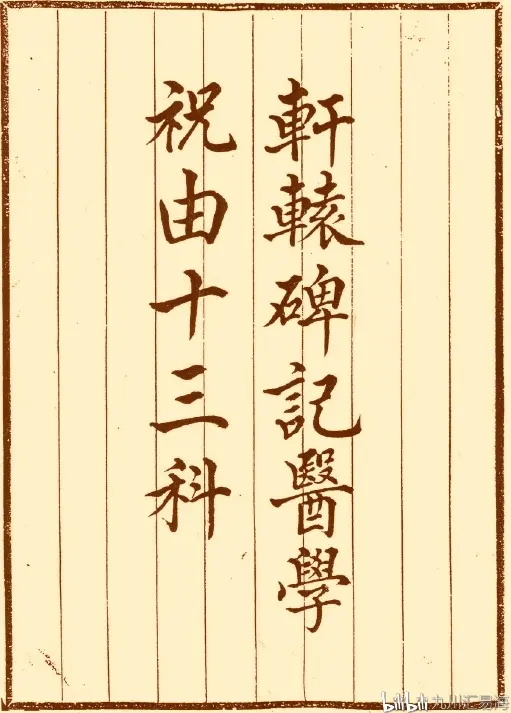 軒轅碑記醫學
祝由十三科
bilibili 九川汇易海